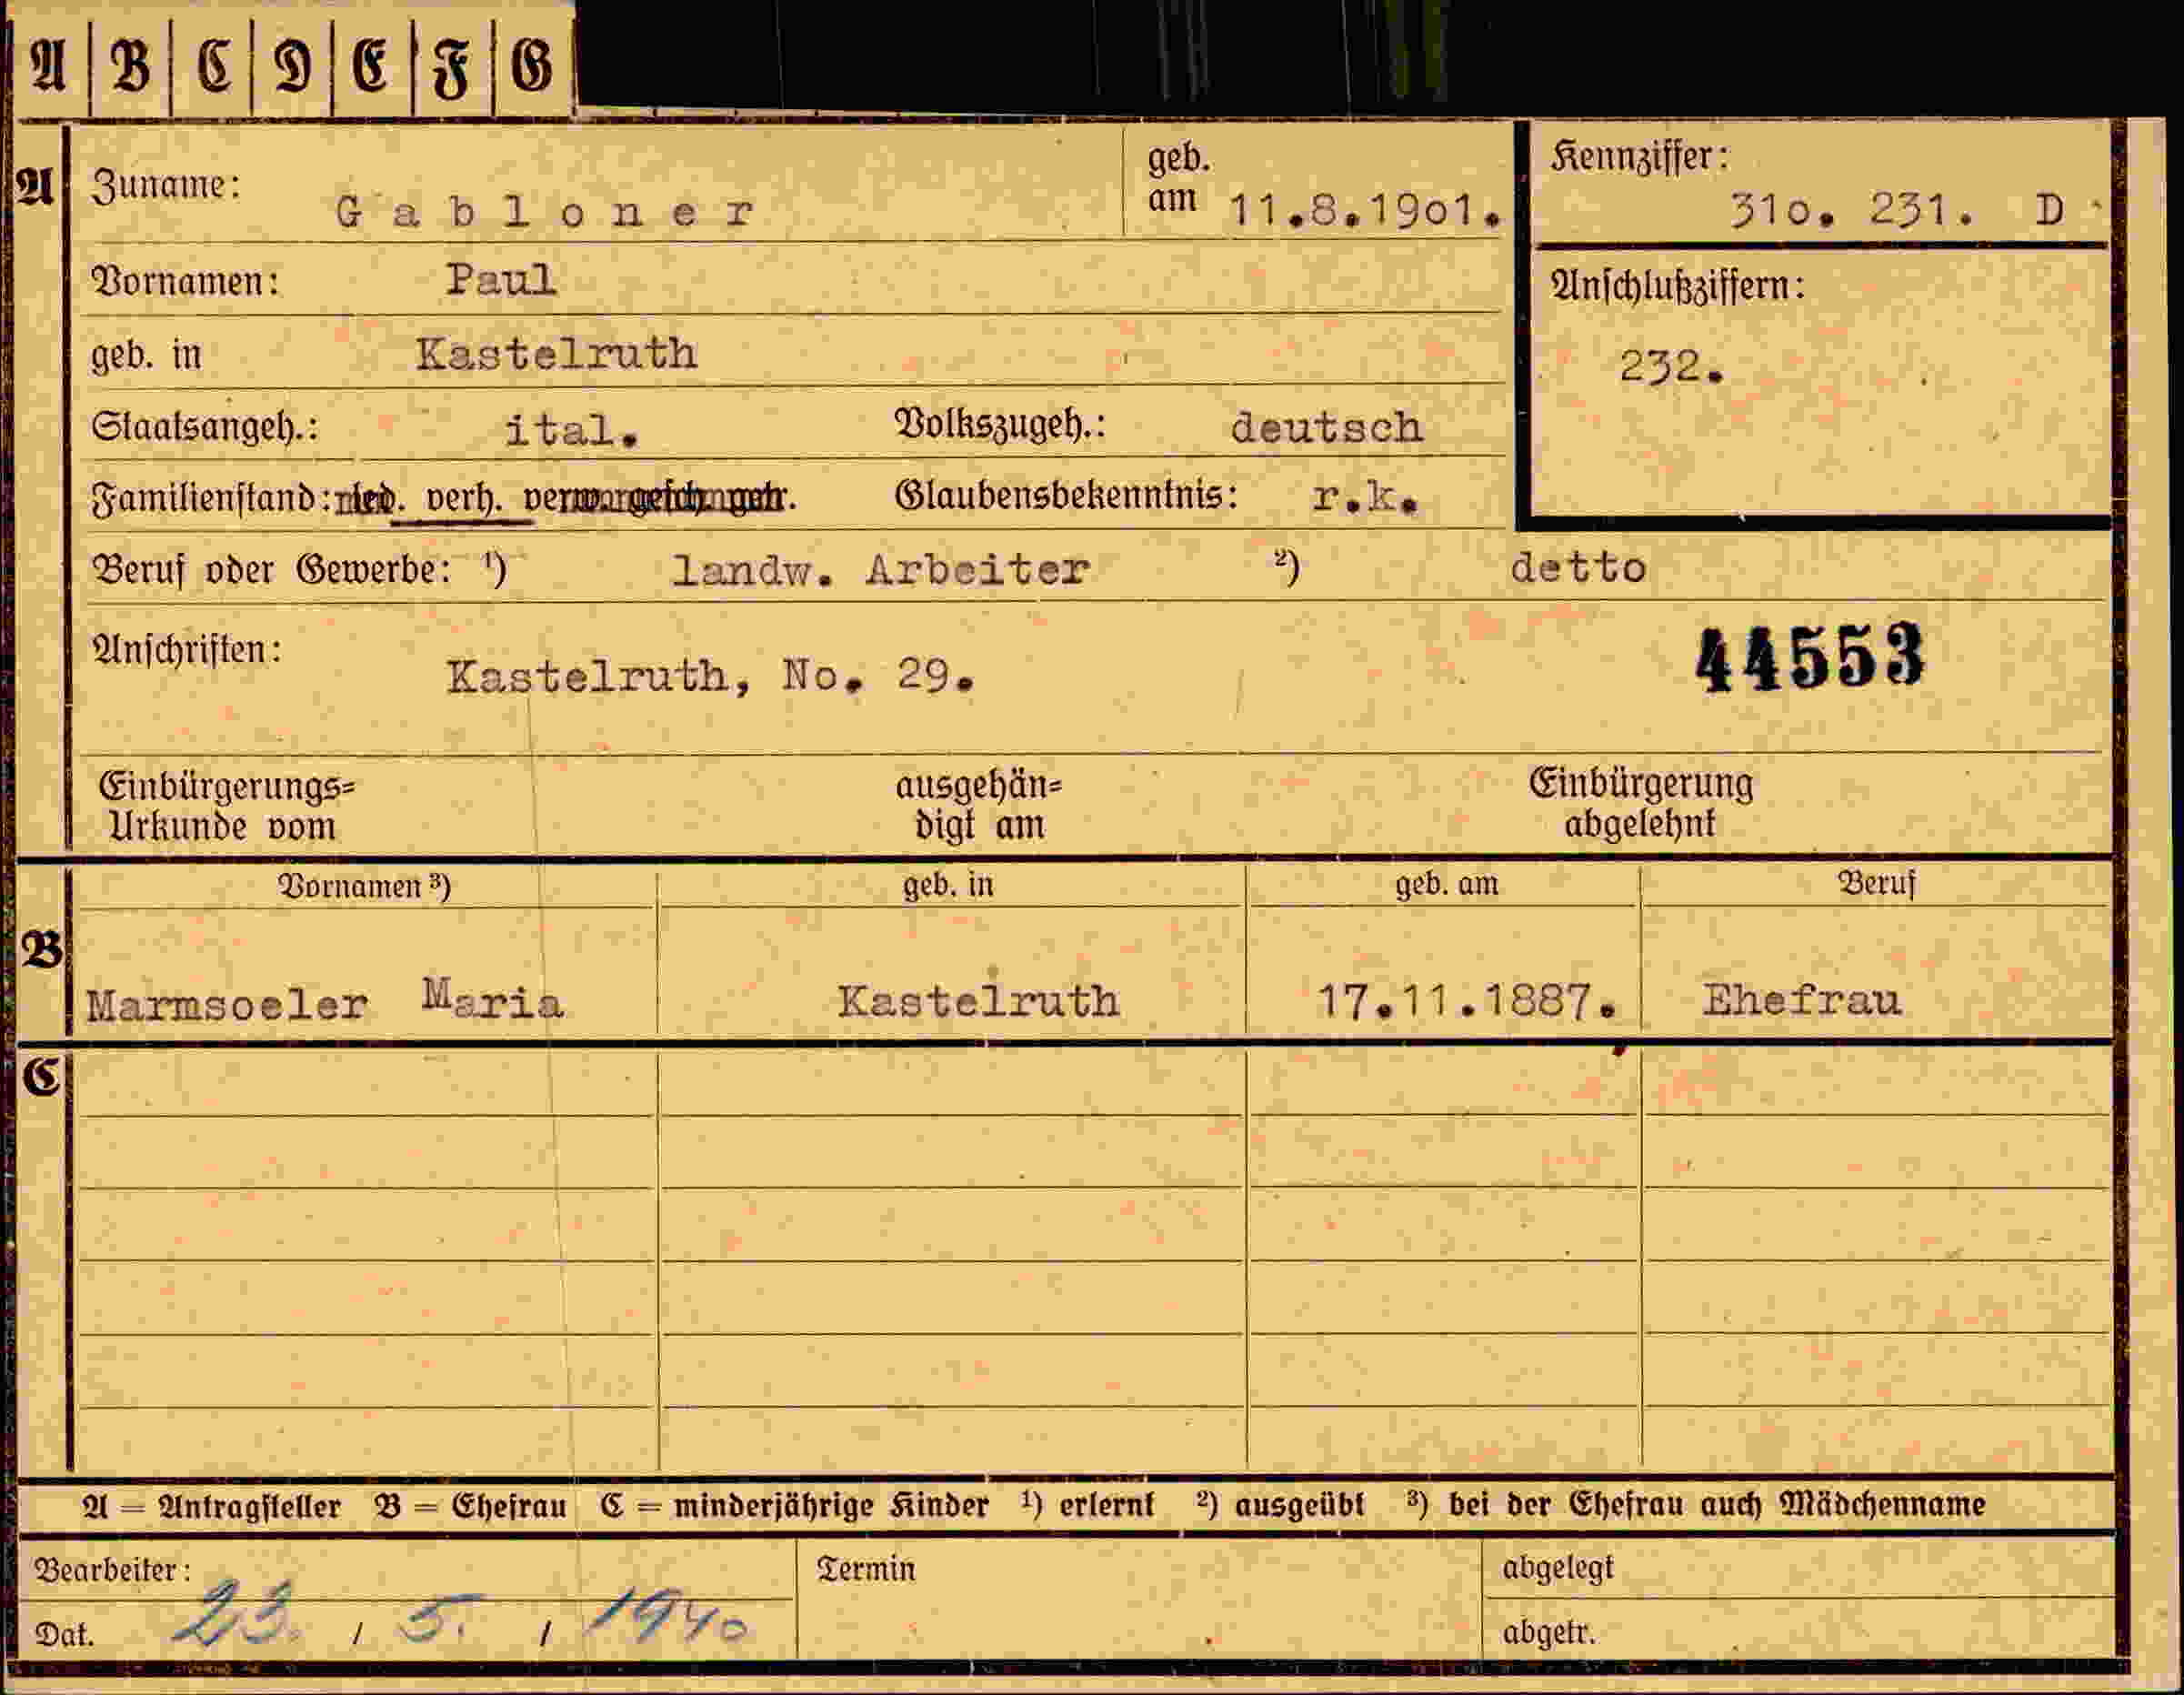 A B C D E F G
A Zuname: Gabloner geb. am 11.8.1901. Kennziffer: 310. 231. D
Vornamen: Paul Anschlußziffern:
geb. in Kastelruth 232.
Staatsangeh.: ital. Volkszugeh.: deutsch
Familienstand: led. verh. verw. gesch. getr. Glaubensbekenntnis: r.k.
Beruf oder Gewerbe: ¹) landw. Arbeiter ²) detto
Anschriften: Kastelruth, No. 29. 44553
Einbürgerungs= ausgehän= Einbürgerung
Urkunde vom digt am abgelehnt
Vornamen ³) geb. in geb. am Beruf
B Marmsoeler Maria Kastelruth 17.11.1887. Ehefrau
C
A = Antragsteller B = Ehefrau C = minderjährige Kinder ¹) erlernt ²) ausgeübt ³) bei der Ehefrau auch Mädchenname
Bearbeiter: Termin abgelegt
Dat. 23. / 5. / 1940 abgetr.